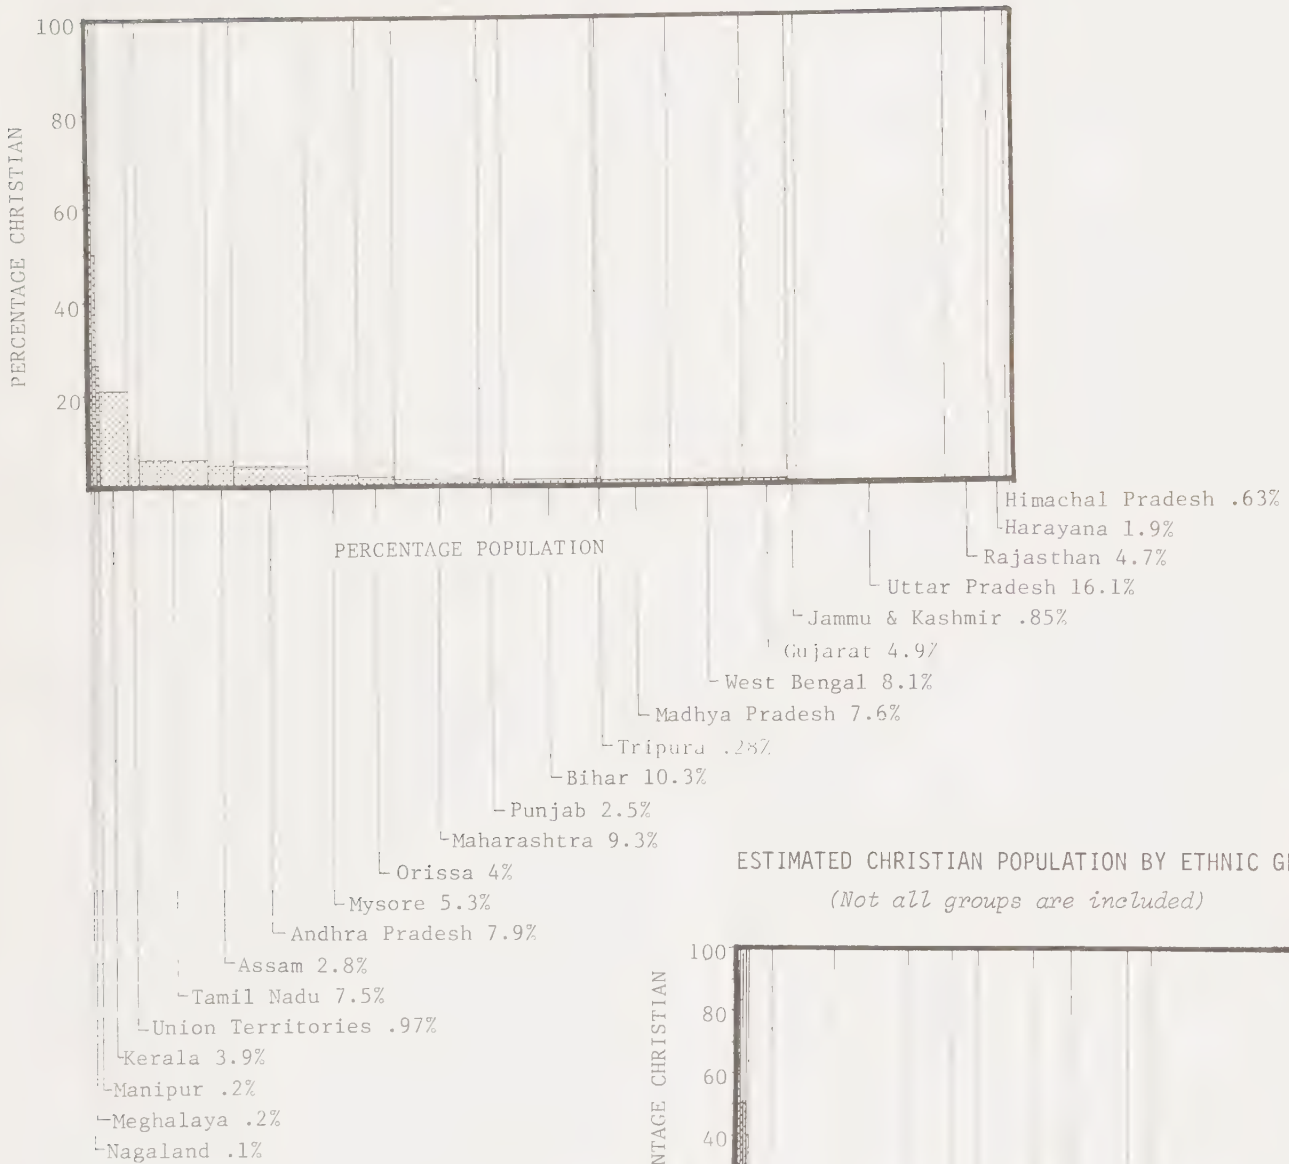 100
80
60
40
20
PERCENTAGE CHRISTIAN
PERCENTAGE POPULATION
Himachal Pradesh .63%
Harayana 1.9%
Rajasthan 4.7%
Uttar Pradesh 16.1%
Jammu & Kashmir .85%
Gujarat 4.9%
West Bengal 8.1%
Madhya Pradesh 7.6%
Tripura .28%
Bihar 10.3%
Punjab 2.5%
Maharashtra 9.3%
Orissa 4%
Mysore 5.3%
Andhra Pradesh 7.9%
Assam 2.8%
Tamil Nadu 7.5%
Union Territories .97%
Kerala 3.9%
Manipur .2%
Meghalaya .2%
Nagaland .1%
ESTIMATED CHRISTIAN POPULATION BY ETHNIC
(Not all groups are included)
100
80
60
40
NTAGE CHRISTIAN